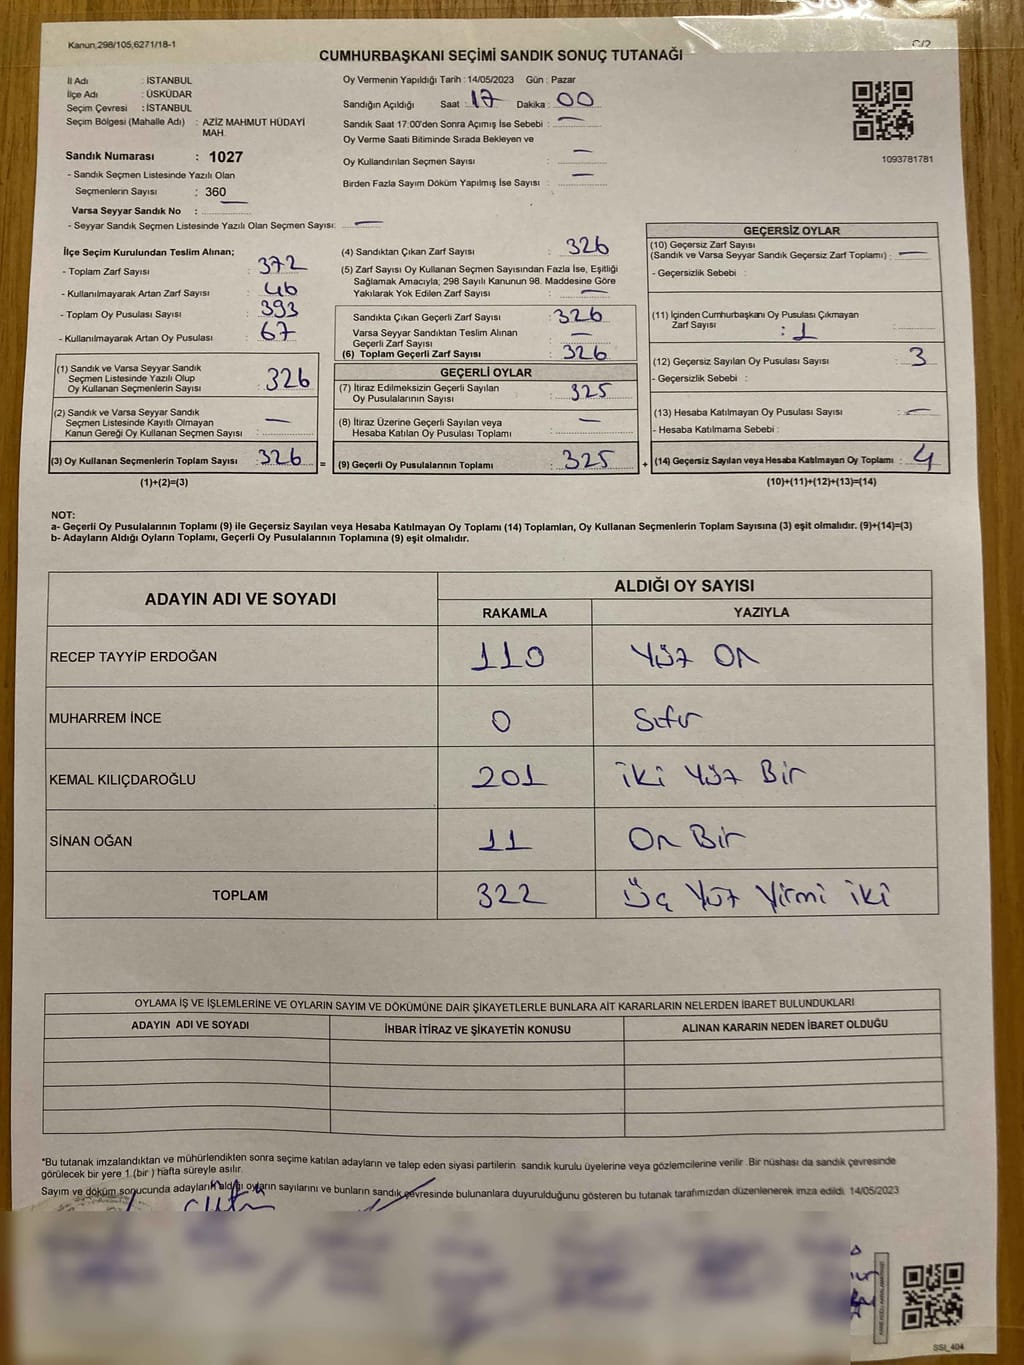 Kanun,298/105,6271/18-1
CUMHURBAŞKANI SEÇİMİ SANDIK SONUÇ TUTANAĞI
İl Adı : İSTANBUL
İlçe Adı : ÜSKÜDAR
Seçim Çevresi : İSTANBUL
Seçim Bölgesi (Mahalle Adı) : AZİZ MAHMUT HÜDAYİ
MAH.
Sandık Numarası : 1027
- Sandık Seçmen Listesinde Yazılı Olan
Seçmenlerin Sayısı : 360
Varsa Seyyar Sandık No :
- Seyyar Sandık Seçmen Listesinde Yazılı Olan Seçmen Sayısı: —
Oy Vermenin Yapıldığı Tarih : 14/05/2023 Gün : Pazar
Sandığın Açıldığı Saat : 17 Dakika : 00
Sandık Saat 17:00'den Sonra Açımış İse Sebebi : —
Oy Verme Saati Bitiminde Sırada Bekleyen ve
Oy Kullandırılan Seçmen Sayısı : —
Birden Fazla Sayım Döküm Yapılmış İse Sayısı : —
1093781781
İlçe Seçim Kurulundan Teslim Alınan;
- Toplam Zarf Sayısı : 372
- Kullanılmayarak Artan Zarf Sayısı : 46
- Toplam Oy Pusulası Sayısı : 393
- Kullanılmayarak Artan Oy Pusulası : 67
(1) Sandık ve Varsa Seyyar Sandık
Seçmen Listesinde Yazılı Olup
Oy Kullanan Seçmenlerin Sayısı : 326
(2) Sandık ve Varsa Seyyar Sandık
Seçmen Listesinde Kayıtlı Olmayan
Kanun Gereği Oy Kullanan Seçmen Sayısı : —
(3) Oy Kullanan Seçmenlerin Toplam Sayısı : 326 =
(1)+(2)=(3)
(4) Sandıktan Çıkan Zarf Sayısı : 326
(5) Zarf Sayısı Oy Kullanan Seçmen Sayısından Fazla İse, Eşitliği
Sağlamak Amacıyla; 298 Sayılı Kanunun 98. Maddesine Göre
Yakılarak Yok Edilen Zarf Sayısı : —
Sandıkta Çıkan Geçerli Zarf Sayısı : 326
Varsa Seyyar Sandıktan Teslim Alınan
Geçerli Zarf Sayısı : —
(6) Toplam Geçerli Zarf Sayısı : 326
GEÇERLİ OYLAR
(7) İtiraz Edilmeksizin Geçerli Sayılan
Oy Pusulalarının Sayısı : 325
(8) İtiraz Üzerine Geçerli Sayılan veya
Hesaba Katılan Oy Pusulası Toplamı : —
(9) Geçerli Oy Pusulalarının Toplamı : 325 +
GEÇERSİZ OYLAR
(10) Geçersiz Zarf Sayısı
(Sandık ve Varsa Seyyar Sandık Geçersiz Zarf Toplamı) : —
- Geçersizlik Sebebi :
(11) İçinden Cumhurbaşkanı Oy Pusulası Çıkmayan
Zarf Sayısı : 1
(12) Geçersiz Sayılan Oy Pusulası Sayısı : 3
- Geçersizlik Sebebi :
(13) Hesaba Katılmayan Oy Pusulası Sayısı : —
- Hesaba Katılmama Sebebi :
(14) Geçersiz Sayılan veya Hesaba Katılmayan Oy Toplamı : 4
(10)+(11)+(12)+(13)=(14)
NOT:
a- Geçerli Oy Pusulalarının Toplamı (9) ile Geçersiz Sayılan veya Hesaba Katılmayan Oy Toplamı (14) Toplamları, Oy Kullanan Seçmenlerin Toplam Sayısına (3) eşit olmalıdır. (9)+(14)=(3)
b- Adayların Aldığı Oyların Toplamı, Geçerli Oy Pusulalarının Toplamına (9) eşit olmalıdır.
ADAYIN ADI VE SOYADI ALDIĞI OY SAYISI
RAKAMLA YAZIYLA
RECEP TAYYİP ERDOĞAN 110 Yüz On
MUHARREM İNCE 0 Sıfır
KEMAL KILIÇDAROĞLU 201 İki Yüz Bir
SİNAN OĞAN 11 On Bir
TOPLAM 322 Üç Yüz Yirmi iki
OYLAMA İŞ VE İŞLEMLERİNE VE OYLARIN SAYIM VE DÖKÜMÜNE DAİR ŞİKAYETLERLE BUNLARA AİT KARARLARIN NELERDEN İBARET BULUNDUKLARI
ADAYIN ADI VE SOYADI İHBAR İTİRAZ VE ŞİKAYETİN KONUSU ALINAN KARARIN NEDEN İBARET OLDUĞU
*Bu tutanak imzalandıktan ve mühürlendikten sonra seçime katılan adayların ve talep eden siyasi partilerin sandık kurulu üyelerine veya gözlemcilerine verilir. Bir nüshası da sandık çevresinde
görülecek bir yere 1 (bir ) hafta süreyle asılır.
Sayım ve döküm sonucunda adayların aldığı oyların sayılarını ve bunların sandık çevresinde bulunanlara duyurulduğunu gösteren bu tutanak tarafımızdan düzenlenerek imza edildi. 14/05/2023
SSI_404